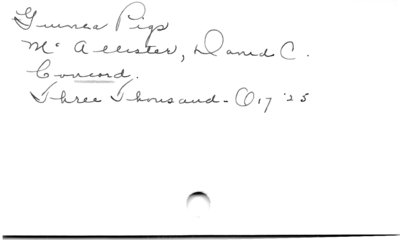 Guinea Pigs
Mc Allister, David C.
Concord.
Three Thousand - O 17 '25